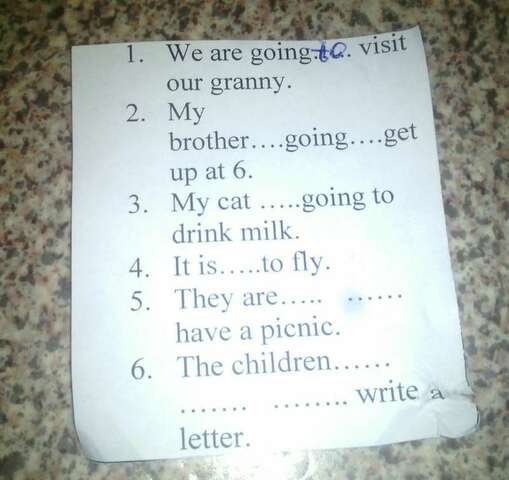 1. We are going.to.. visit
our granny.
2. My
brother....going....get
up at 6.
3. My cat .....going to
drink milk.
4. It is.....to fly.
5. They are..... ......
have a picnic.
6. The children......
....... ........ write a
letter.